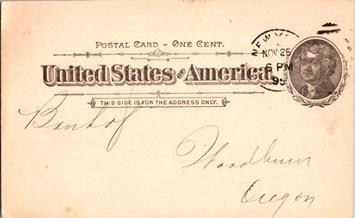 POSTAL CARD - ONE CENT.
United States of America.
THIS SIDE IS FOR THE ADDRESS ONLY.
NOV 25
6 PM
Bank of
Woodburn
Oregon